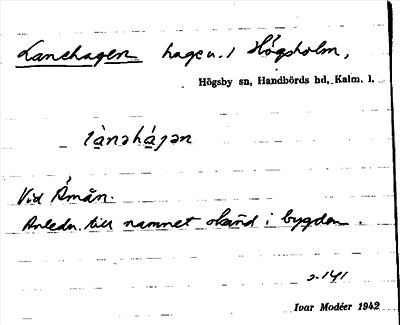 Lanehagen hage u. / Högsholm,
Högsby sn, Handbörds hd, Kalm. l.
lànəhájən
Vid Åmån.
Anledn. till namnet okänd i bygden.
2-141
Ivar Modéer 1942